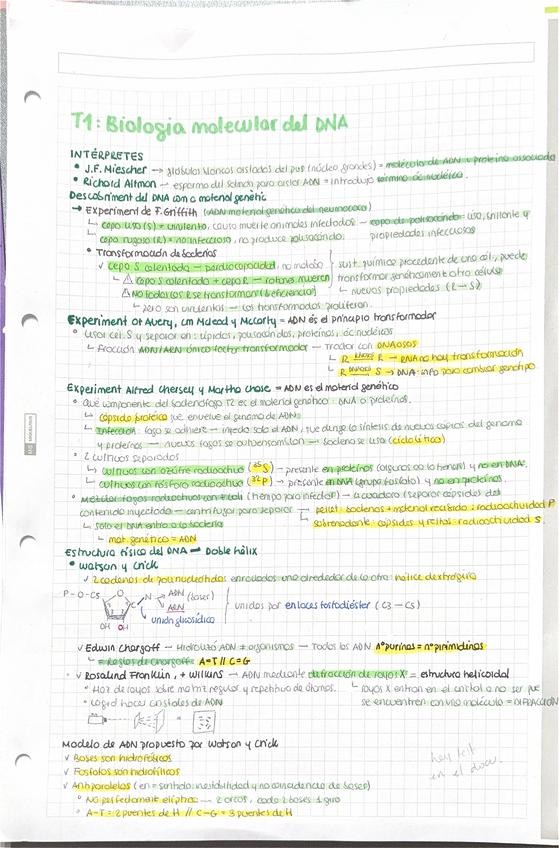 T1: Biologia molecular del DNA
INTÉRPRETES
• J.F. Miescher → glóbulos blancos aislados del pus (núcleo grandes) = molécula de ADN y proteína asociada
• Richard Altman → esperma del salmón para aislar ADN = introdujo término ác. nucleico.
Descobriment del DNA com a material genètic
→ Experiment de F. Griffith (ADN material genético del neumococo)
↳ cepa lisa (S) = virulento, causa muerte animales infectados → capa de polisacárido: liso, brillante y
↳ cepa rugosa (R) = no infeccioso, no produce polisacárido. propiedades infecciosas
• Transformación de bacterias
✓ cepa S calentada → perdía capacidad, no mataba
sust. química procedente de una cél., puede
↳ ⚠ cepa S calentada + cepa R → ratones mueren
transformar genéticamente otra célula
⚠ No todas las R se transforman (beneficial)
↳ nuevas propiedades (R → S)
↳ pero son virulentas → las transformadas proliferan.
Experiment of Avery, cm Mcleod y McCarty = ADN es el principio transformador
• Usar cel. S y separar en: lípidos, polisacáridos, proteínas, ác. nucleicos
↳ Fracción ADN/ARN único factor transformador → Tratar con DNAasas
R → R → RNA no hay transformación
R → S → DNA: info para cambiar genotipo.
Experiment Alfred Chersey y Martha Chase = ADN es el material genético
• Qué componente del bacteriófago T2 es el material genético: DNA o proteínas.
↳ cápside proteica que envuelve el genoma de ADN
↳ Infección: fago se adhiere → inyecta solo el ADN, que dirige la síntesis de nuevas copias del genoma
y proteínas → nuevos fagos se autoensamblan → bacteria se lisa (ciclo lítico)
• 2 cultivos separados
↳ cultivos con azufre radioactivo (³⁵S) → presente en proteínas (algunos aa lo tienen) y no en DNA.
↳ cultivos con fósforo radioactivo (³²P) → presente en DNA (grupo fosfato) y no en proteínas.
• Mezclar fagos radioactivos con E.coli (tiempo para infectar) → licuadora (separar cápsides del
contenido inyectado → centrifugar para separar → pellet: bacterias + material recubierto: radioactividad P
↳ solo el DNA entra a la bacteria
sobrenadante: cápsides y restos: radioactividad S.
↳ mat. genético = ADN
Estructura física del DNA → Doble hèlix
• Watson y Crick
✓ 2 cadenas de polinucleótidos enrolladas una alrededor de la otra: hélice dextrógira
P-O-C5 O C N → ADN (bases)
→ ARN
unidos por enlaces fosfodiéster (C3 – C5)
OH OH unión glucosídica
✓ Edwin Chargaff → Hidrolizó ADN ≠ organismos → Todos los ADN nº purinas = nº pirimidinas
↳ = Reglas de Chargaff: A=T // C=G
✓ Rosalind Franklin, + Wilkins → ADN mediante difracción de rayos X = estructura helicoidal
• Haz de rayos sobre matriz regular y repetitiva de átomos.
↳ rayos X entran en el cristal a no ser que
• Logró hacer cristales de ADN
se encuentren con una molécula = DIFRACCIÓN
Modelo de ADN propuesto por Watson y Crick
✓ Bases son hidrofóbicas
✓ Fosfatos son hidrofílicos
✓ Antiparalelas (en = sentido: inestabilidad y no coincidencia de bases)
• No perfectamente elíptica → 2 arcos, cada 2 bases 1 giro
• A-T = 2 puentes de H // C-G = 3 puentes de H
hay test
en el docu.